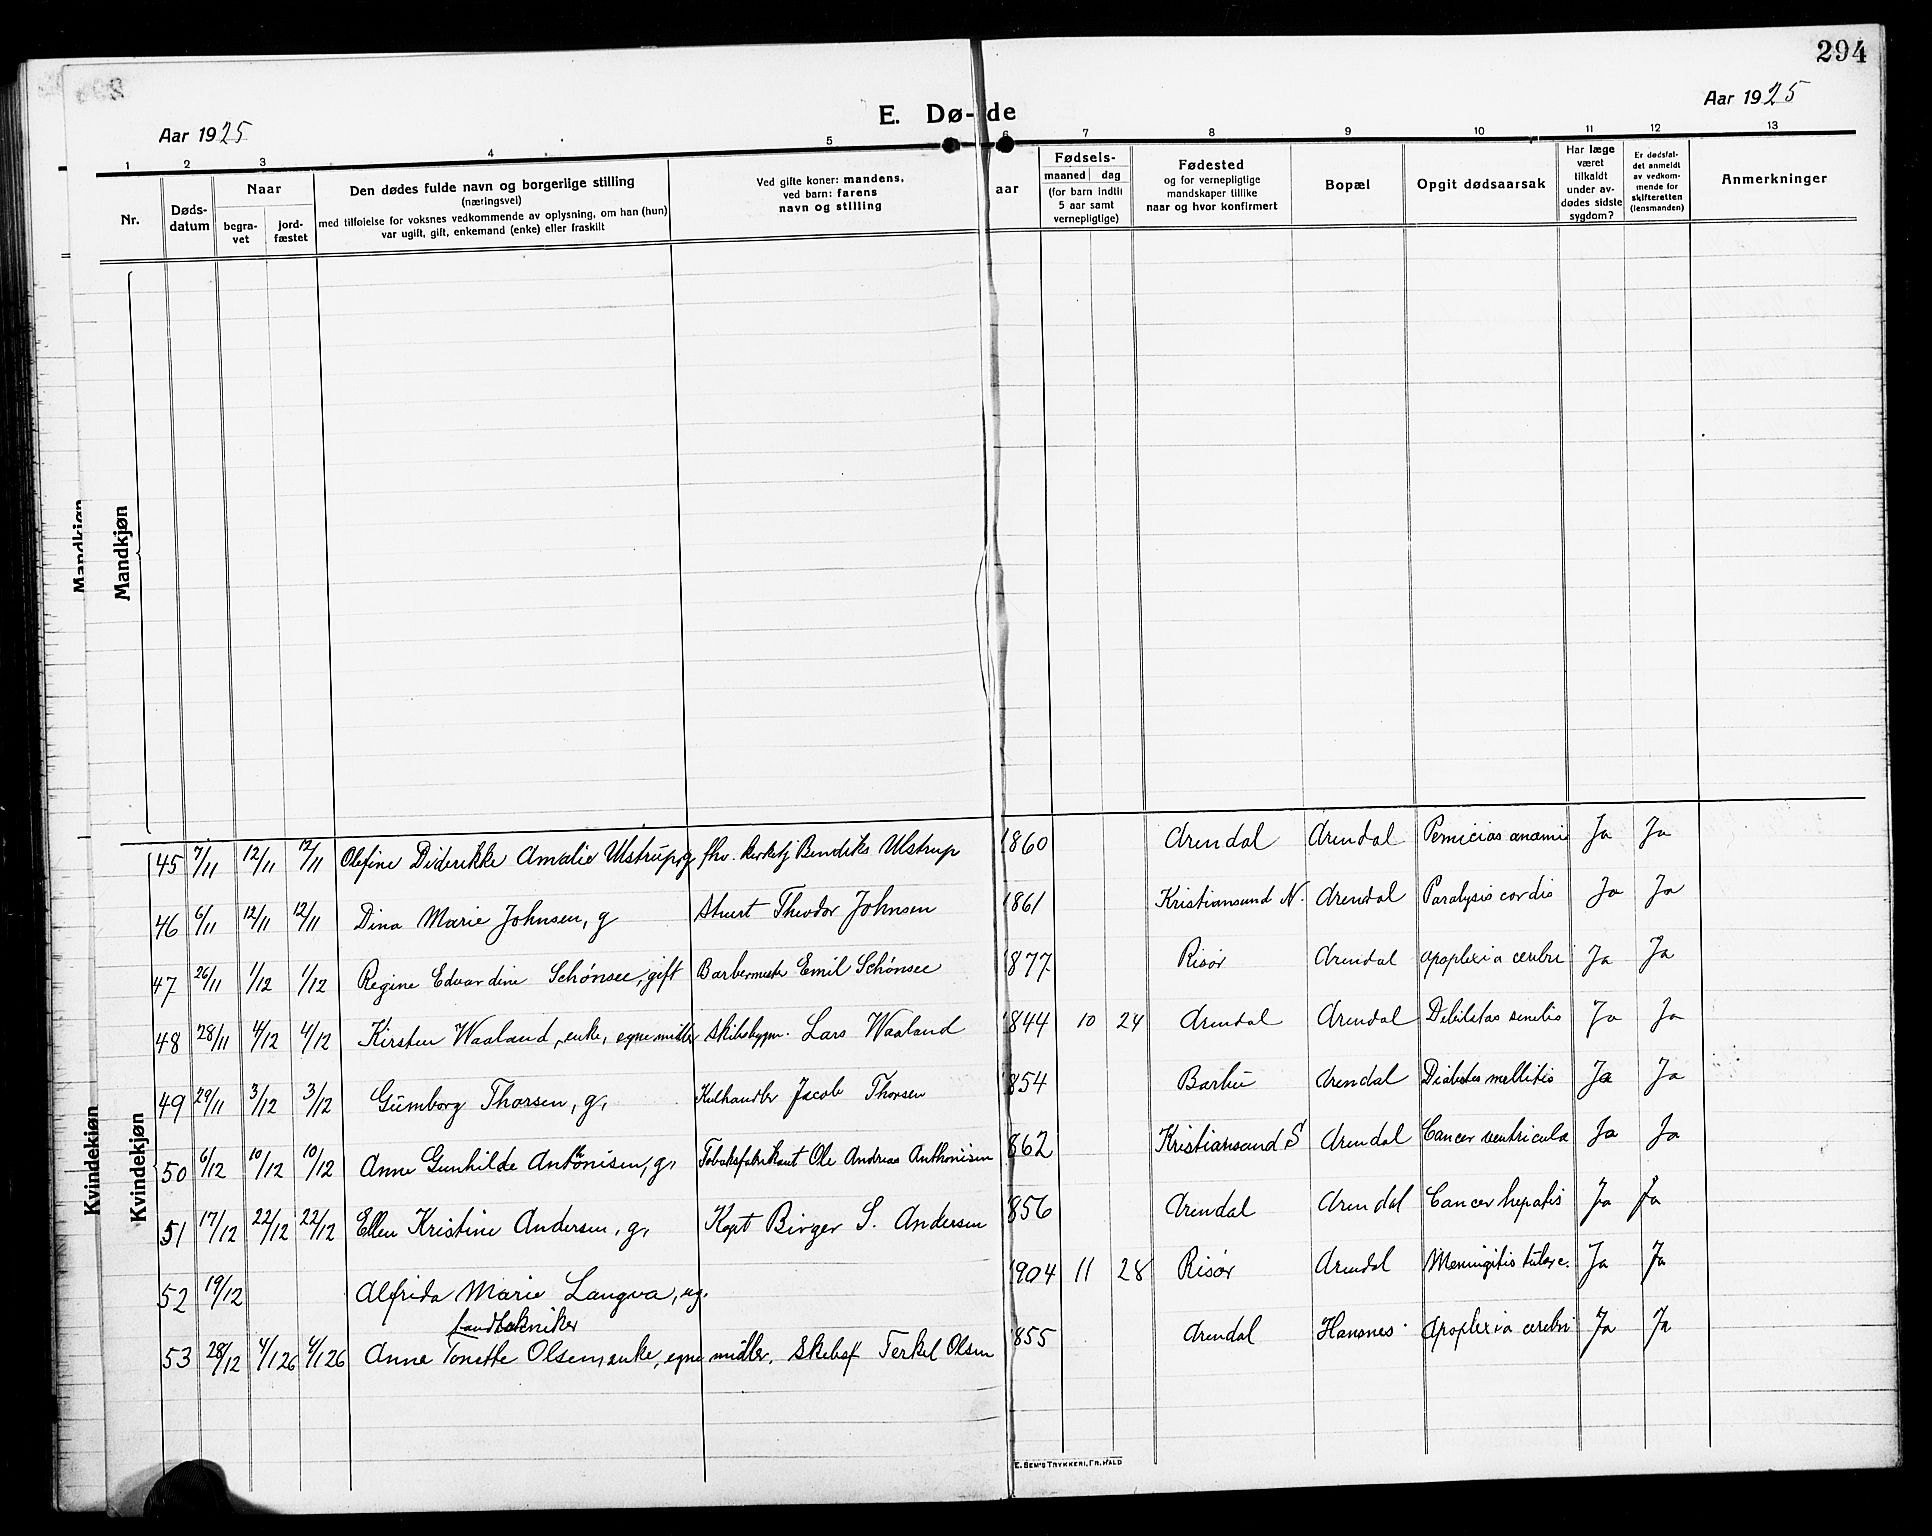 294
Aar 1925
E. Dø- de
Aar 1925
1 2 3 4 5 6 7 8 9 10 11 12 13
Nr.
Døds-
datum
Naar
begra-
vet
jord-
fæstet
Den dødes fulde navn og borgerlige stilling
(næringsvei)
med tilføielse for voksnes vedkommende av oplysning, om han (hun)
var ugift, gift, enkemand (enke) eller fraskilt
Ved gifte koner: mandens,
ved barn: farens
navn og stilling
aar
Fødsels-
maaned dag
(for barn indtil
5 aar samt
vernepligtige)
Fødested
og for vernepligtige
mandskaper tillike
naar og hvor konfirmert
Bopæl
Opgit dødsaarsak
Har læge
været
tilkaldt
under av-
dødes sidste
sygdom?
Er dødsfal-
det anmeldt
av vedkom-
mende for
skifteretten
(lensmanden)
Anmerkninger
Mandkjøn
Mandkjøn
Kvindekjøn
Kvindekjøn
45 7/11 12/11 12/11 Olefine Diderikke Amalie Ulstrup, g fhv. Kirketj Bendiks Ulstrup 1860 Arendal Arendal Pernicias anæmi Ja Ja
46 6/11 12/11 12/11 Dina Marie Johnsen, g Stuert Theodor Johnsen 1861 Kristiansund N. Arendal Paralysis cordis Ja Ja
47 26/11 1/12 1/12 Regine Edvardine Schönsee, gift Barbermester Emil Schönsee 1877 Risør Arendal Apoplexia cerebri Ja Ja
48 28/11 4/12 4/12 Kirsten Waaland, enke, egne midler Skibsbygm. Lars Waaland 1844 10 24 Arendal Arendal Debilitas senilis Ja Ja
49 29/11 3/12 3/12 Gunborg Thorsen, g, Kulhandler Jacob Thorsen 1854 Barbu Arendal Diabetes mellitis Ja Ja
50 6/12 10/12 10/12 Anne Gunhilde Antonisen, g, Tobaksfabrikant Ole Andreas Anthonisen 1862 Kristiansand S Arendal Cancer ventricula Ja Ja
51 17/12 22/12 22/12 Ellen Kristine Andersen, g, Kapt Birger S. Andersen 1856 Arendal Arendal Cancer hepatis Ja Ja
52 19/12 Alfrida Marie Langva, ug. 1904 11 28 Risør Arendal Meningitis tuberc. Ja Ja
tandtekniker
53 28/12 4/1 26 4/1 26 Anne Tonette Olsen, enke, egne midler, Skibsf Terkel Olsen 1855 Arendal Hansnes Apoplexia cerebri Ja Ja
E. SEM'S TRYKKERI, FR.HALD